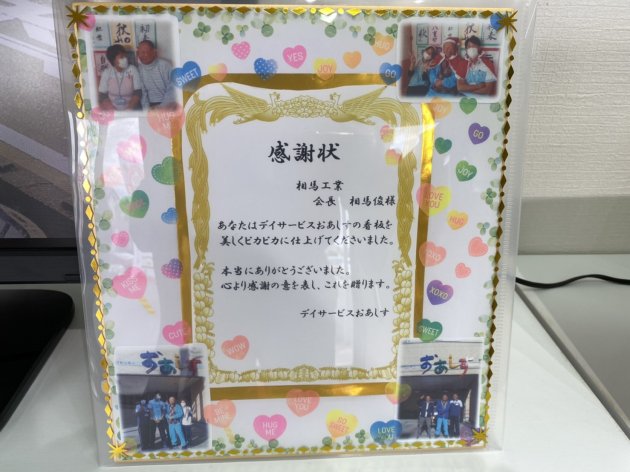 感謝状
相馬工業
会長 相馬俊様
あなたはデイサービスおあしすの看板を
美しくピカピカに仕上げてくださいました。
本当にありがとうございました。
心より感謝の意を表し、これを贈ります。
デイサービスおあしす
SWEET
YES
JOY
HUG
GO
GO
JOY
LOVE YOU
HUG
XOXO
XOXO
SWEET
HUG
KISS ME
CUTE
WOW
BE MINE
HUG ME
LOVE YOU
SO SWEET
LOVE YOU
おあしす
おあしす